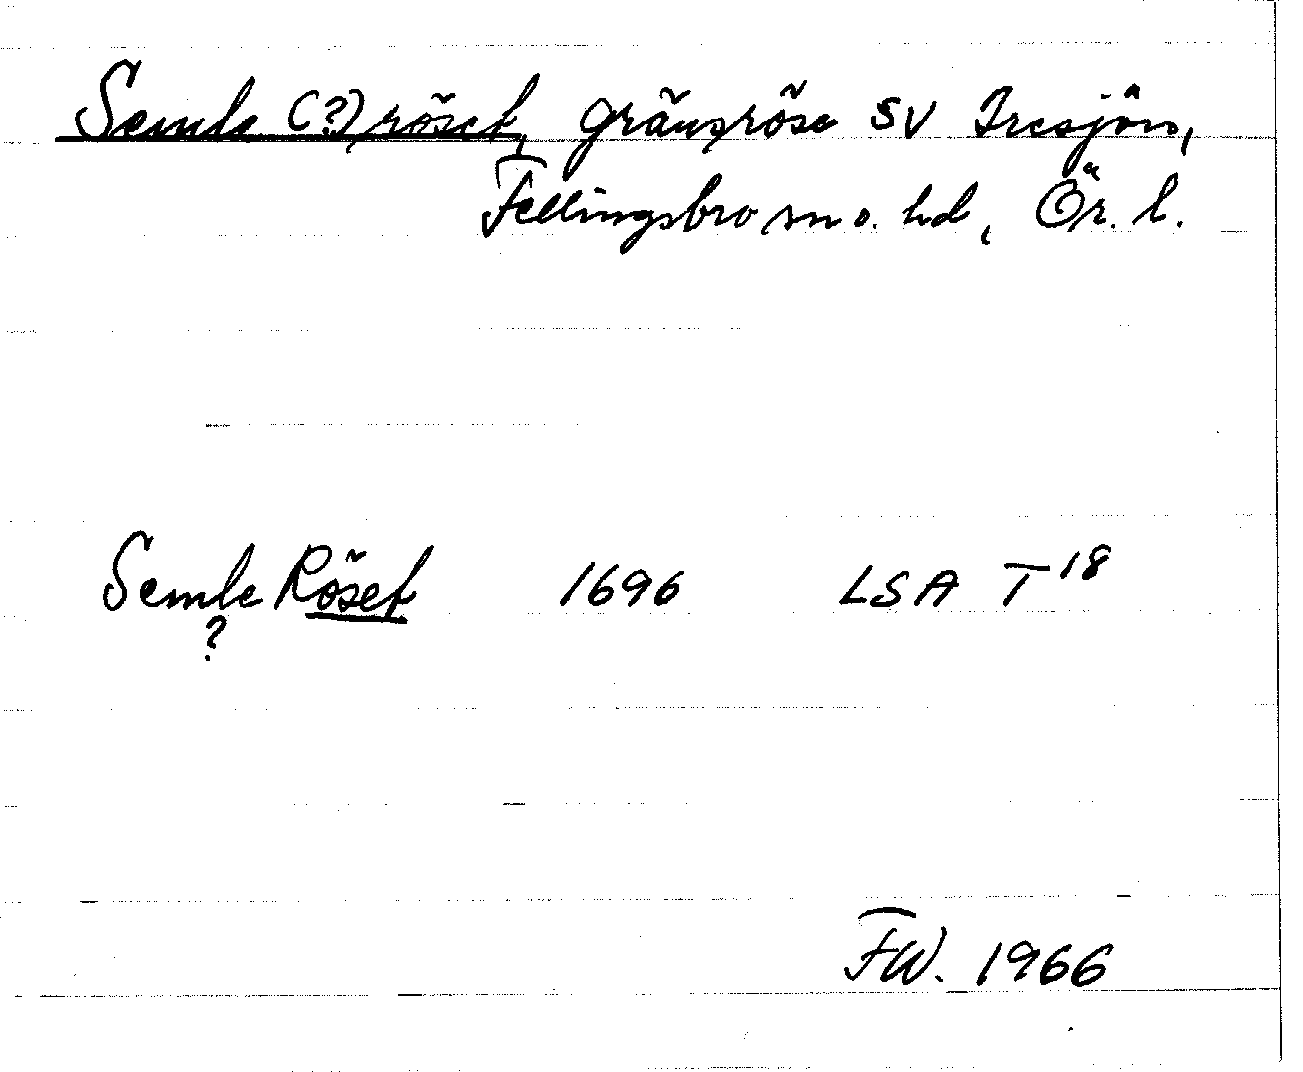 Semle (?) röset, gränsröse SV Iresjön,
Fellingsbro sn o. hd, Ör. l.
Semle Röset 1696 LSA T 18
?
FW. 1966